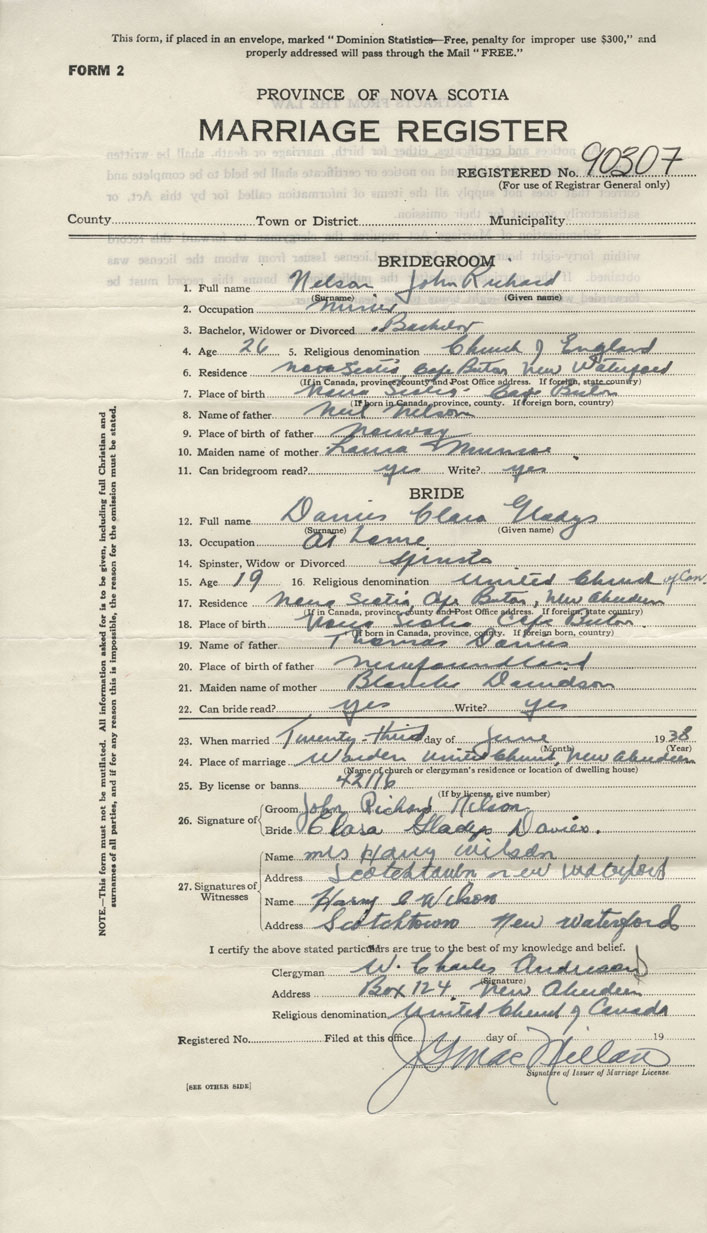 This form, if placed in an envelope, marked "Dominion Statistics—Free, penalty for improper use $300," and
properly addressed will pass through the Mail "FREE."
FORM 2
PROVINCE OF NOVA SCOTIA
MARRIAGE REGISTER
REGISTERED No. 90307
(For use of Registrar General only)
County Town or District Municipality
BRIDEGROOM
1. Full name Nelson John Richard
(Surname) (Given name)
2. Occupation Miner
3. Bachelor, Widower or Divorced Bachelor
4. Age 26 5. Religious denomination Church of England
6. Residence Nova Scotia, Cape Breton New Waterford
(If in Canada, province, county and Post Office address. If foreign, state country)
7. Place of birth Nova Scotia Cape Breton
(If born in Canada, province, county. If foreign born, country)
8. Name of father Neil Nelson
9. Place of birth of father Norway
10. Maiden name of mother Laura Munroe
11. Can bridegroom read? yes Write? yes
BRIDE
12. Full name Davies Clara Gladys
(Surname) (Given name)
13. Occupation At home
14. Spinster, Widow or Divorced Spinster
15. Age 19 16. Religious denomination United Church of Can.
17. Residence Nova Scotia, Cape Breton, New Aberdeen
(If in Canada, province, county and Post Office address. If foreign, state country)
18. Place of birth Nova Scotia Cape Breton
(If born in Canada, province, county. If foreign born, country)
19. Name of father Thomas Davies
20. Place of birth of father Newfoundland
21. Maiden name of mother Blanche Davidson
22. Can bride read? yes Write? yes
23. When married Twenty-third day of June 1938
(Month) (Year)
24. Place of marriage Warden United Church, New Aberdeen
(Name of church or clergyman's residence or location of dwelling house)
25. By license or banns 42116
(If by license, give number)
26. Signature of Groom John Richard Nelson
Bride Clara Gladys Davies.
27. Signatures of Witnesses
Name Mrs Harry Wilson
Address Scotchtown New Waterford
Name Harry C Wilson
Address Scotchtown New Waterford
I certify the above stated particulars are true to the best of my knowledge and belief.
Clergyman W. Charles Anderson
(Signature)
Address Box 124 New Aberdeen
Religious denomination United Church of Canada
Registered No. Filed at this office day of 19
J G MacMillan
Signature of Issuer of Marriage License
[SEE OTHER SIDE]
NOTE.—This form must not be mutilated. All information asked for is to be given, including full Christian and
surnames of all parties, and if for any reason this is impossible, the reason for the omission must be stated.